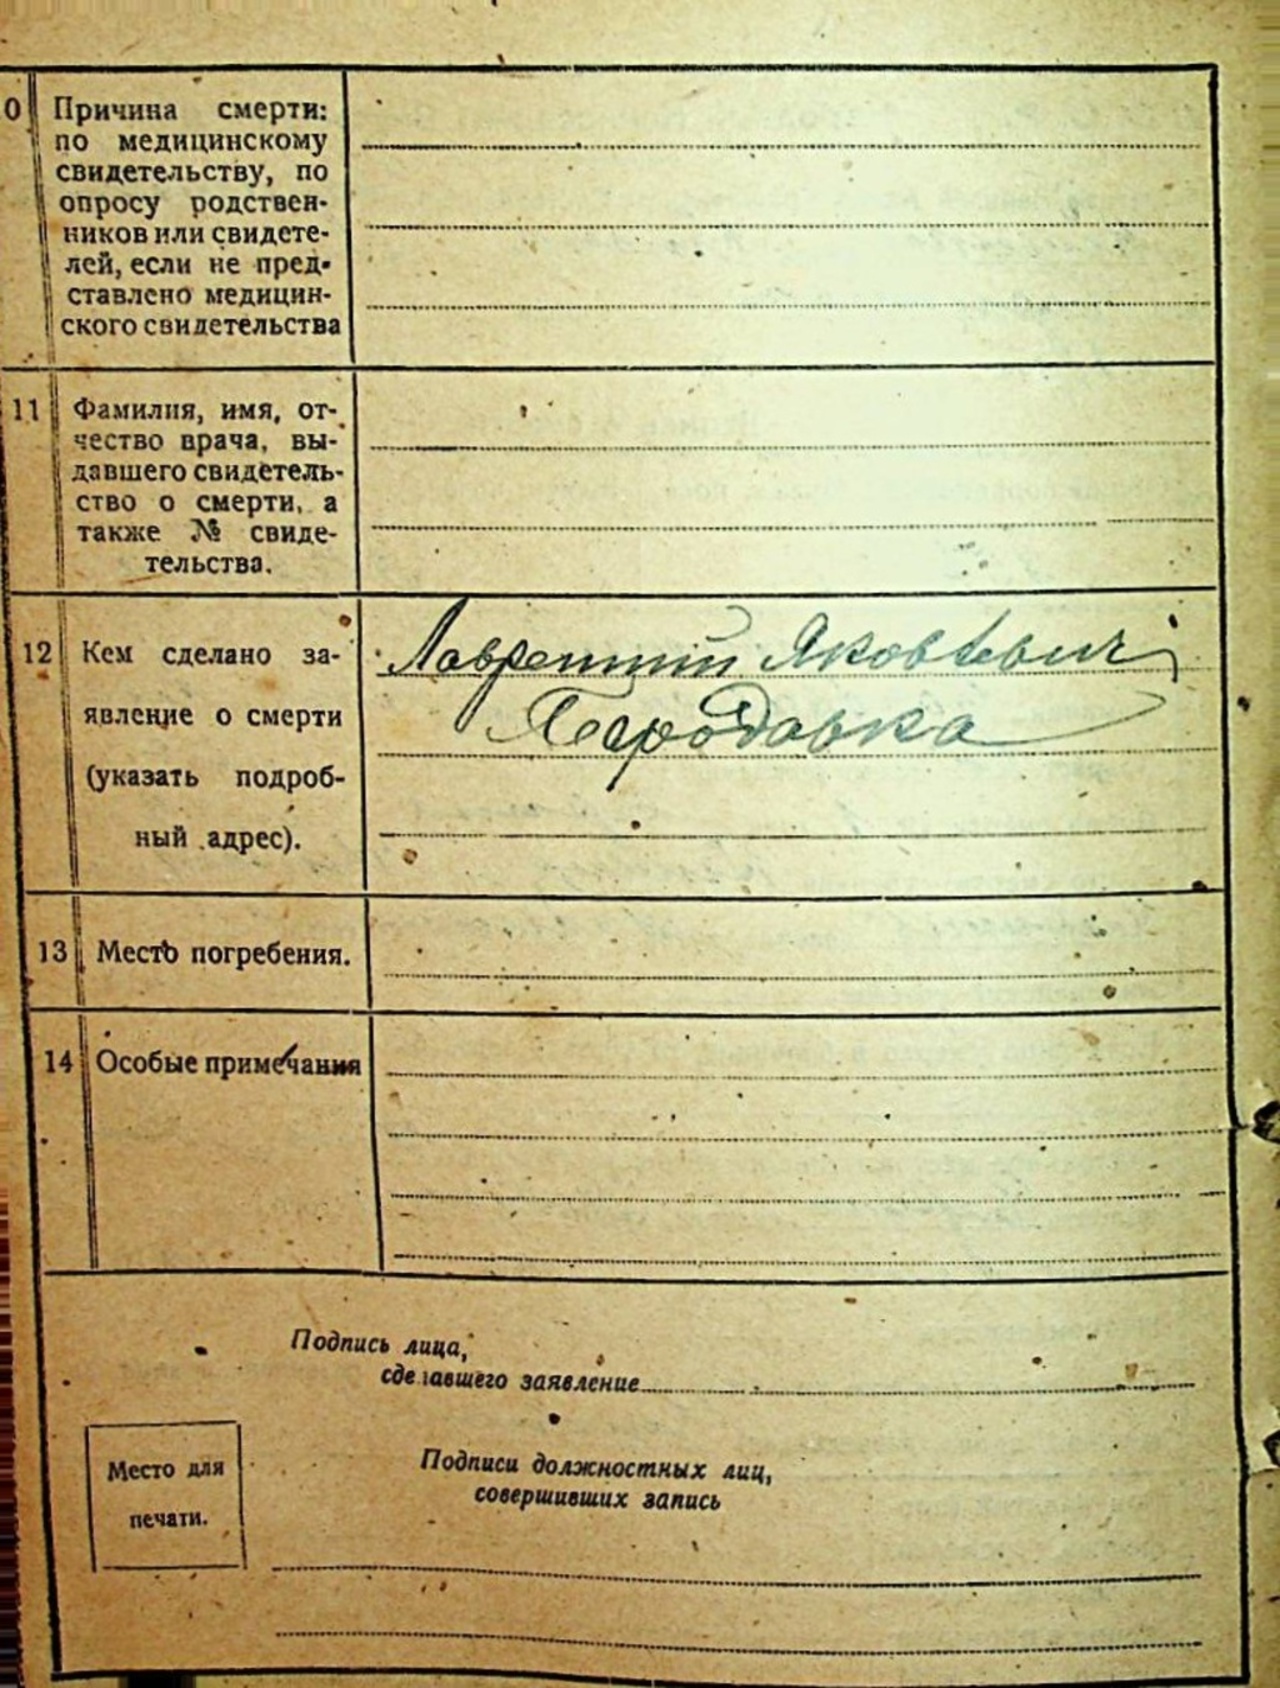 0 Причина смерти:
по медицинскому
свидетельству, по
опросу родствен-
ников или свидете-
лей, если не пред-
ставлено медицин-
ского свидетельства
11 Фамилия, имя, от-
чество врача, вы-
давшего свидетель-
ство о смерти, а
также № свиде-
тельства.
12 Кем сделано за-
явление о смерти
(указать подроб-
ный адрес).
Лаврентий Яковлевич
13 Место погребения.
14 Особые примечания
Подпись лица,
сделавшего заявление
Место для
печати.
Подписи должностных лиц,
совершивших запись